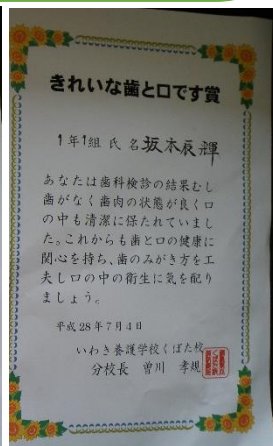 きれいな歯と口です賞
1年1組 氏名 坂本辰輝
あなたは歯科検診の結果むし
歯がなく歯肉の状態が良く口
の中も清潔に保たれていまし
た。これからも歯と口の健康に
関心を持ち、歯のみがき方を工
夫し口の中の衛生に気を配り
ましょう。
平成28年7月4日
いわき養護学校くぼた校
分校長 曽川 孝規